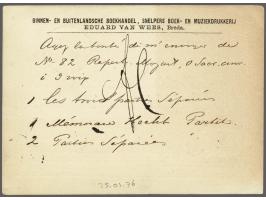 BINNEN- EN BUITENLANDSCHE BOEKHANDEL, SNELPERS BOEK- EN MUZIEKDRUKKERIJ
EDUARD VAN WEES, Breda.
Ayez la bonté de m'envoyer de
No. 82 Repert. Mozart,
1 Les trois parties séparées
1 Mémoire Hecht Partit.
2 Parties séparées
25.01.76